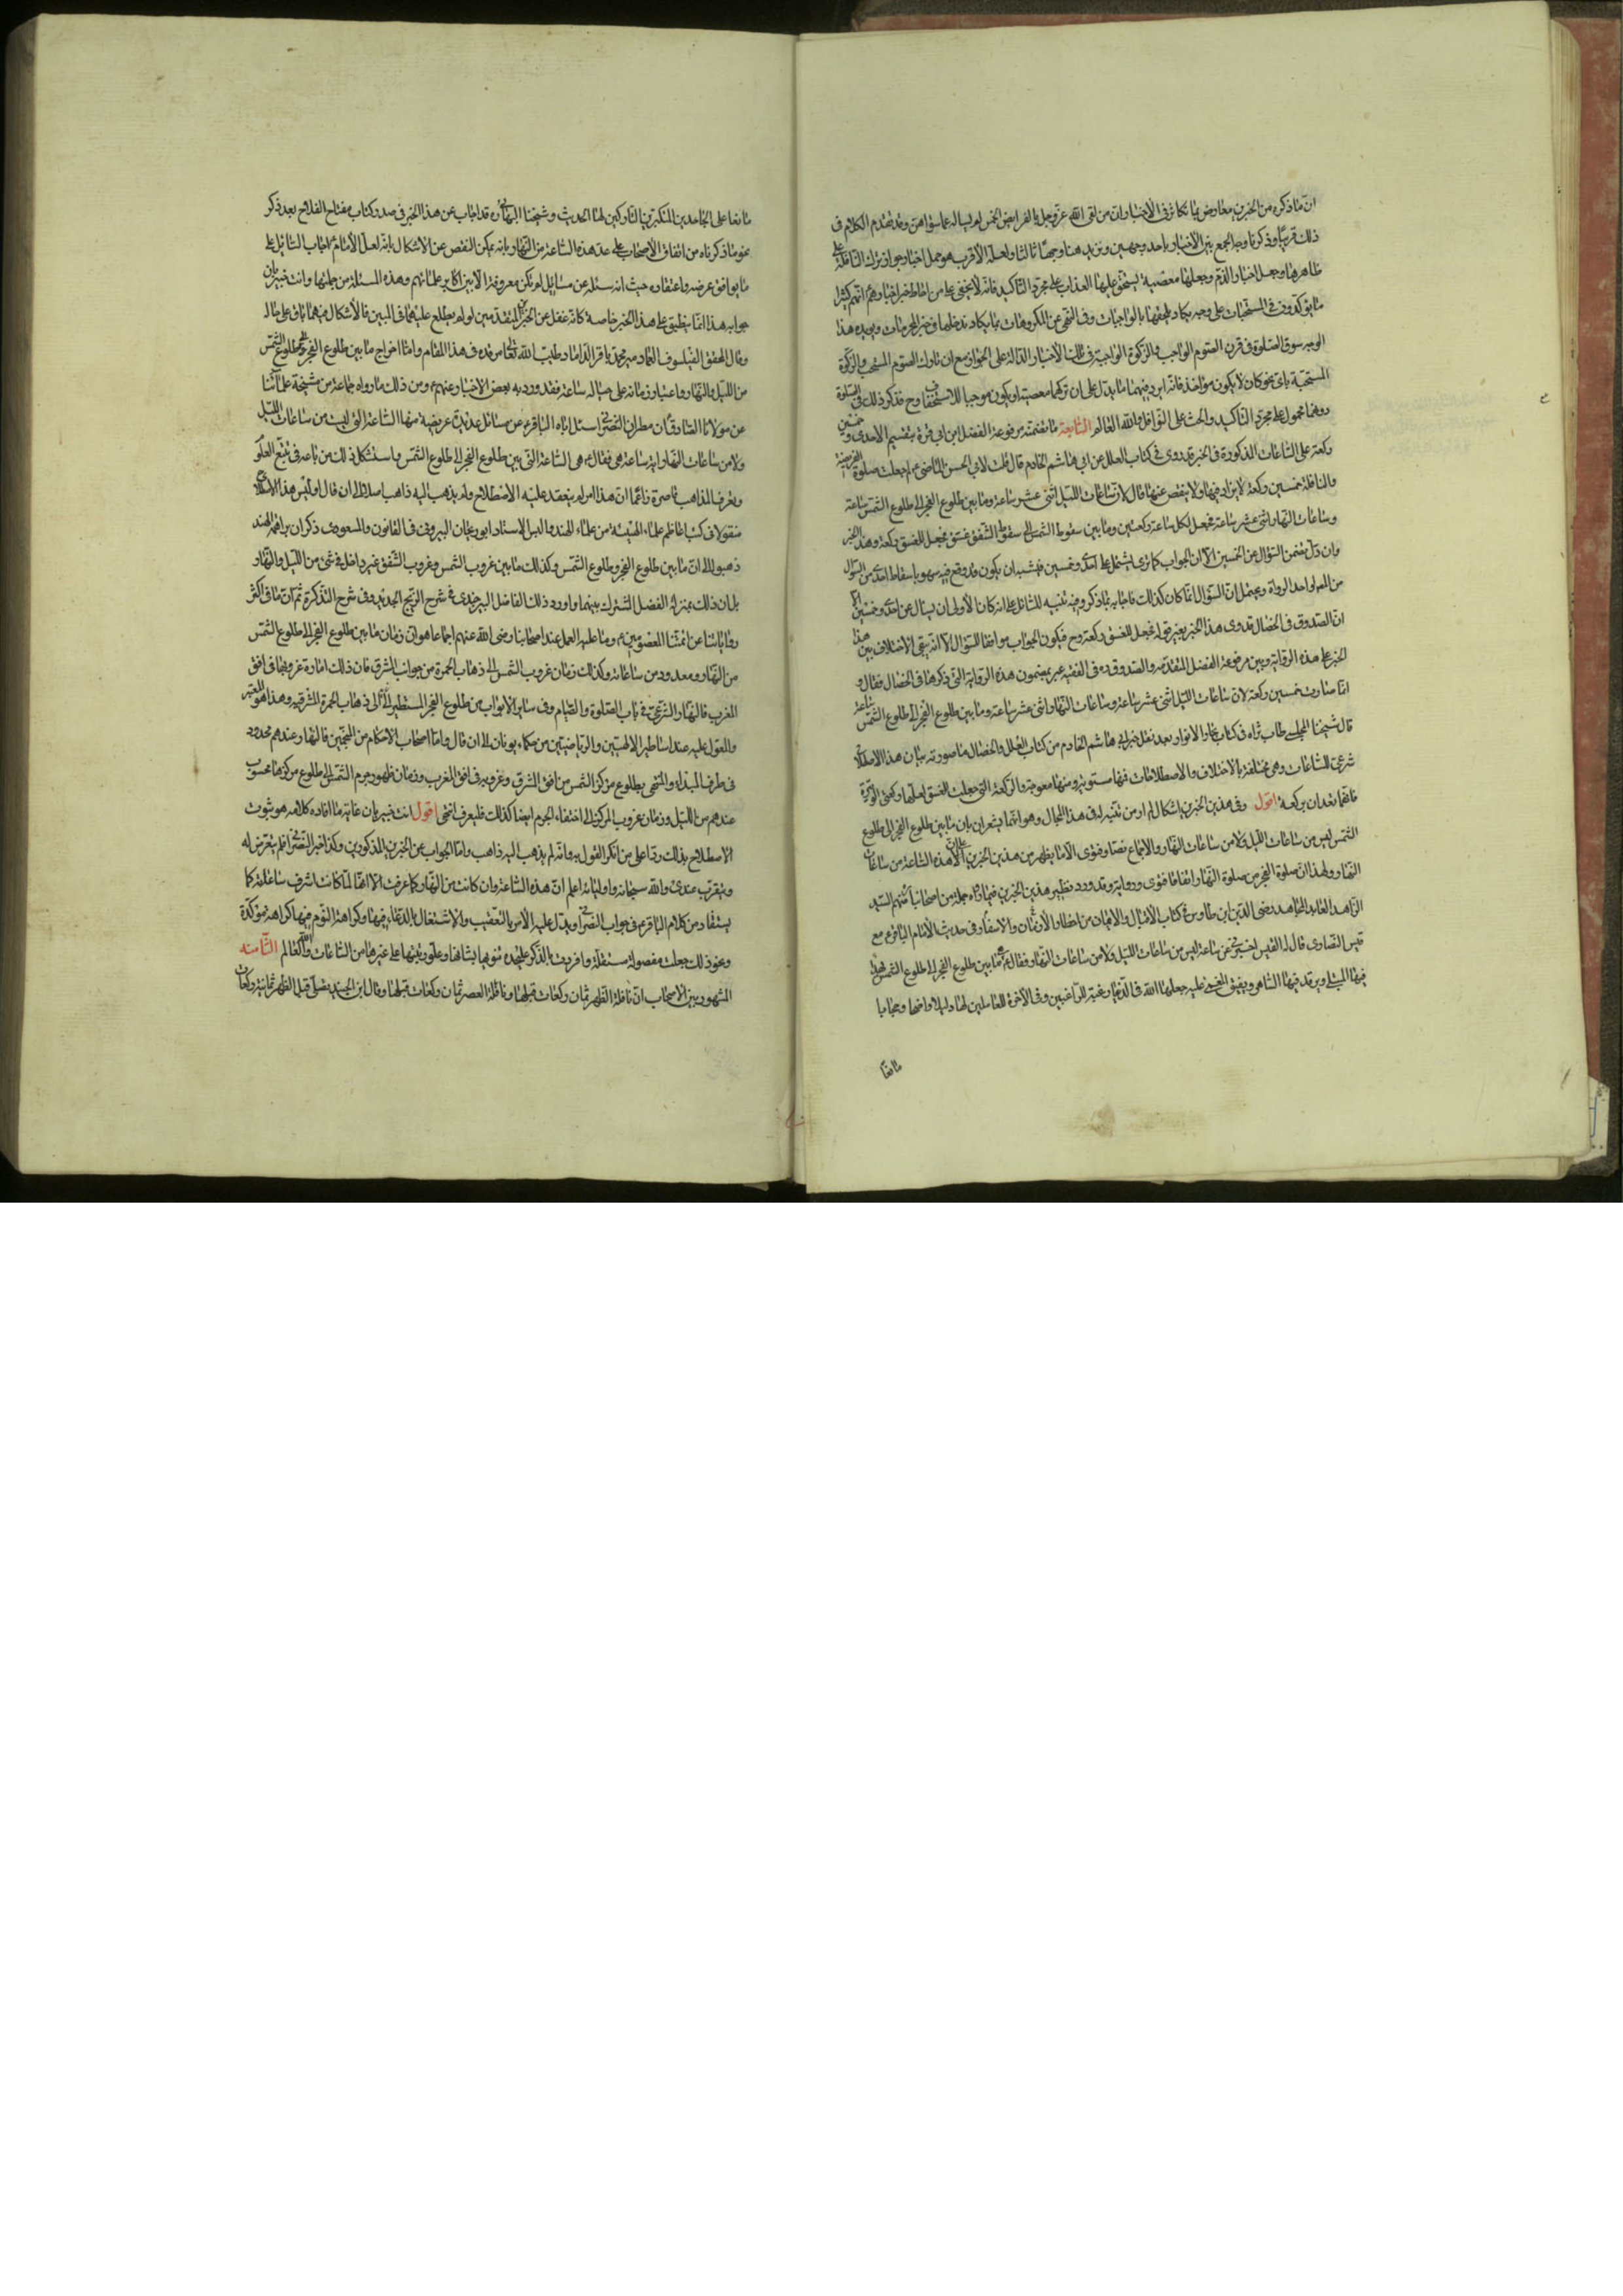 ان ما ذكره من الخبرين معارض بما تكاثر في الأخبار وان من لقي الله عز وجل بالفرائض الخمس لم يساله عما سواهن وقد تقدم الكلام في
ذلك قريبا وذكرنا وجه الجمع بين الأخبار باحد وجهين ونزيد هنا وجها ثالثا ولعله الأقرب هو حمل اخبار جواز ترك النافلة على
ظاهرها وجعل اخبار الذم وجعلها معصية يستحق عليها العذاب على مجرد التأكيد فانه لا يخفى على من احاط خبرا باخبارهم انهم كثيرا
ما يؤكدون في المستحبات على وجه يكاد يلحقها بالواجبات وفي النهي عن المكروهات بما يكاد يدخلها في حيز المحرمات ويؤيده هذا
الوجه سوق الصلوة في قرن الصوم الواجب والزكوة الواجبة في تلك الأخبار الدالة على الجواز مع ان تارك الصوم المستحب والزكوة
المستحبة باي نحو كان لا يكون مؤاخذا فانه لم يرد فيهما ما يدل على ان تركهما معصية او يكون موجبا للاستخفاف وح فذكر ذلك في الصلوة
دونهما محمول على مجرد التأكيد والحث على النوافل والله العالم السابعة ما تضمنته مرفوعة الفضل ابن ابي قرة بتقسيم الاحدى وخمسين
ركعة على الساعات المذكورة في الخبر قد روى في كتاب العلل عن ابي هاشم الخادم قال قلت لابي الحسن الماضي لم جعلت صلوة الفريضة
والنافلة خمسين ركعة لا يزاد فيها ولا ينقص عنها قال لان ساعات الليل اثنى عشر ساعة وما بين طلوع الفجر الى طلوع الشمس ساعة
وساعات النهار اثنى عشر ساعة فجعل لكل ساعة ركعتين وما بين سقوط الشمس الى سقوط الشفق غسق فجعل للغسق ركعة وهذا الخبر
وان دل بتضمن السؤال عن الخمسين الا ان الجواب كما ترى اشتمل على احدى وخمسين فيشبه ان يكون قد وقع فيه سهو باسقاط احدى من السؤال
من العلل او احد الرواة ويحتمل ان السؤال انما كان كذلك فاجابه بما ذكر وفيه تنبيه للسائل على انه كان الأولى ان يسال عن احدى وخمسين
ان الصدوق في الخصال قد روى هذا الخبر بغير قوله فجعل للغسق ركعة وح فيكون الجواب موافقا للسؤال الا انه يبقى الاختلاف بين هذا
الخبر على هذه الرواية وبين مرفوعة الفضل المتقدمة والصدوق قده في الفقيه عبر بمضمون هذه الرواية التي ذكرها في الخصال فقال و
انما صارت خمسين ركعة لان ساعات الليل اثنى عشر ساعة وساعات النهار اثنى عشر ساعة وما بين طلوع الفجر الى طلوع الشمس ساعة
قال شيخنا المجلسي طاب ثراه في كتاب بحار الانوار بعد نقل خبر ابي هاشم الخادم من كتاب العلل والخصال ما صورته بيان هذا الاصطلاح
شرعي للساعات وهي مختلفة باختلاف الاصطلاحات فمنها مستوية ومنها معوجة والركعة التي جعلت للغسق لعلها ركعتي الوتيرة
فانهما تعدان بركعة اقول وفي هذين الخبرين اشكال لم ار من تنبه له في هذا المجال وهو انهما يشعران بان ما بين طلوع الفجر الى طلوع
الشمس ليس من ساعات الليل ولا من ساعات النهار والاجماع نصا وفتوى الا ما يظهر من هذين الخبرين على ان هذه الساعة من ساعات
النهار ولهذا ان صلوة الفجر من صلوة النهار اتفاقا فتوى ورواية وقد ورد نظير هذين الخبرين فيما رواه جملة من اصحابنا منهم السيد
الزاهد العابد المجاهد رضي الدين ابن طاوس في كتاب الأمان من اخطار الأزمان والأسفار في حديث الأمام الباقر ع مع
قيس النصارى قال له القيس اخبرني عن ساعة ليس من ساعات الليل ولا من ساعات النهار فقال ع ما بين طلوع الفجر الى طلوع الشمس يهدأ
فيها المبتلى ويرقد فيها الساهر ويفيق المغمى عليه جعلها الله في الدنيا رغبة للراغبين وفي الآخرة للعاملين لها دليلا واضحا وحجابا
بالغا
بالغا على الجاحدين المتكبرين التاركين لها الحديث وشيخنا البهائي ره قد اجاب عن هذا الخبر في صدر كتاب مفتاح الفلاح بعد ذكر
نحو ما ذكرناه من اتفاق الأصحاب على عد هذه الساعة من النهار بانه يمكن التفصي عن الاشكال بانه لعل الأمام ع اجاب السائل على
ما يوافق عرضه واعتقاده حيث انه سئله عن مسائل لم تكن معروفة الا بين اكابر علمائهم وهذه المسئلة من جملتها وانت خبير بان
جوابه هذا انما ينطبق على هذا الخبر خاصة كانه غفل عن الخبرين المتقدمين او لم يطلع عليهما في البين فالأشكال فيهما باق على حاله
وقال المحقق الفيلسوف العماد مير محمد باقر الداماد طيب الله تعالى رمسه في هذا المقام واما اخراج ما بين طلوع الفجر الى طلوع الشمس
من الليل والنهار واعتبار زمانه على حياله ساعة فقد ورد به بعض الاخبار عنهم ع ومن ذلك ما رواه جماعة من مشيخة علمائنا
عن مولانا الصادق ع ان مطران النصارى سئل اباه الباقر ع عن مسائل عديدة عويصة منها الساعة التي ليست من ساعات الليل
ولا من ساعات النهار اية ساعة هي فقال ع هي الساعة التي بين طلوع الفجر الى طلوع الشمس واستشكل ذلك من باعه في تتبع العلوم
وتعرف المذاهب قاصرة زاعما ان هذا امر لم ينعقد عليه الاصطلاح ولم يذهب اليه ذاهب اصلا الى ان قال او ليس هذا الاصطلاح
منقولا في كتب اعاظم علماء الهيئة من علماء الهند اليس الاستاد ابو ريحان البيروني في القانون المسعودي ذكر ان براهمة الهند
ذهبوا الى ان ما بين طلوع الفجر وطلوع الشمس وكذلك ما بين غروب الشمس وغروب الشفق غير داخل في شئ من الليل والنهار
بل ان ذلك بمنزلة الفصل المشترك بينهما واورد ذلك الفاضل البيرجندي في شرح الزيج الجديد وفي شرح التذكرة ثم ان ما في اكثر
رواياتنا عن ائمتنا المعصومين ع وما عليه العمل عند اصحابنا رضي الله عنهم اجماعا هو ان زمان ما بين طلوع الفجر الى طلوع الشمس
من النهار ومعدود من ساعاته وكذلك زمان غروب الشمس الى ذهاب الحمرة من جوانب المشرق فان ذلك امارة غروبها في افق
المغرب فالنهار الشرعي في باب الصلوة والصيام وفي ساير الابواب من طلوع الفجر المستطير الى ذهاب الحمرة المشرقية وهذا هو المعتبر
والمعول عليه عند اساطين الالهيين والرياضيين من حكماء يونان الى ان قال واما اصحاب الاحكام من المنجمين فالنهار عندهم محدود
في طرفي المبدا والمنتهى بطلوع مركز الشمس من افق المشرق وغروبه في افق المغرب وزمان ظهور جرم الشمس الى طلوع مركزها محسوب
عندهم من الليل وزمان غروب المركز الى اختفاء الجرم ايضا كذلك فليعرف انتهى اقول انت خبير بان غاية ما افاده كلامه هو ثبوت
الاصطلاح بذلك ردا على من انكر القول به وانه لم يذهب اليه ذاهب واما الجواب عن الخبرين المذكورين وكذا خبر النصراني فلم يتعرض له
ويقرب عندي والله سبحانه واوليائه اعلم ان هذه الساعة وان كانت من النهار كما عرفت الا انها لما كانت اشرف ساعاته كما
يستفاد من كلام الباقر ع في جواب النصراني ويدل عليه الأمر بالتعقيب والاشتغال بالدعاء فيها وكراهة النوم فيها كراهة مؤكدة
ونحو ذلك جعلت مفصولة مستقلة وافردت بالذكر على حدة تنويها بشانها وعلو رتبتها على غيرها من الساعات والله العالم الثامنة
المشهور بين الأصحاب ان نافلة الظهر ثمان ركعات قبلها ونافلة العصر ثمان ركعات قبلها وقال ابن الجنيد يصلي قبل الظهر ثمانية ركعات